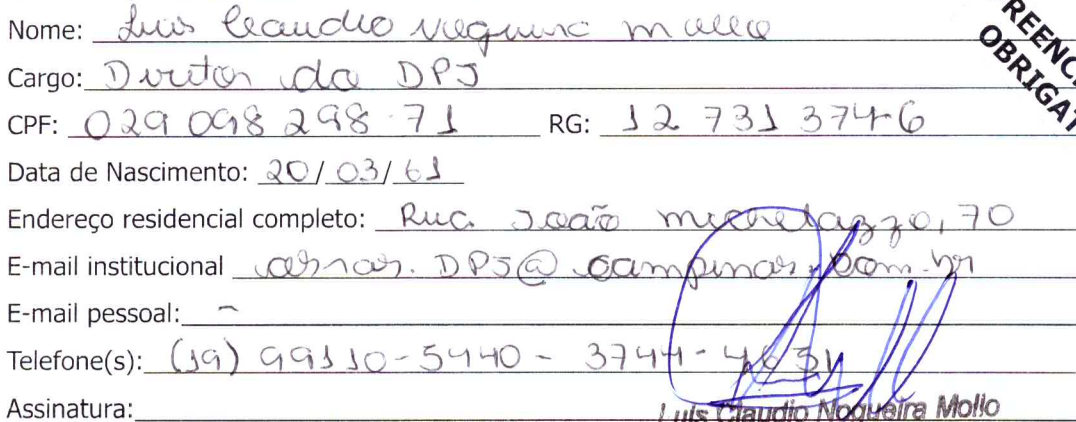 REENC
OBRIGAT
Nome: Luis Claudio Nogueira Mollo
Cargo: Diretor do DPJ
CPF: 029 098 298-71 RG: 12 731 374-6
Data de Nascimento: 20/03/61
Endereço residencial completo: Rua João Michelazzo, 70
E-mail institucional DPJ@campinas.com.br
E-mail pessoal: -
Telefone(s): (19) 99110-5440 - 3744-4631
Assinatura:
Luis Claudio Nogueira Mollo